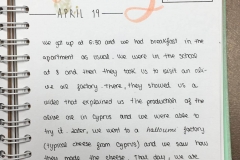 APRIL 19
We got up at 6:30 and we had breakfast in the
apartment as usual. We were in the school
at 8 and then they took us to visit an oli-
ve oil factory. There, they showed us a
video that explained us the production of the
olive oil in Cyprus and we were able to
try it. Later, we went to a halloumi factory
(typical cheese from Cyprus) and we saw how
they made the cheese. That day, we ate